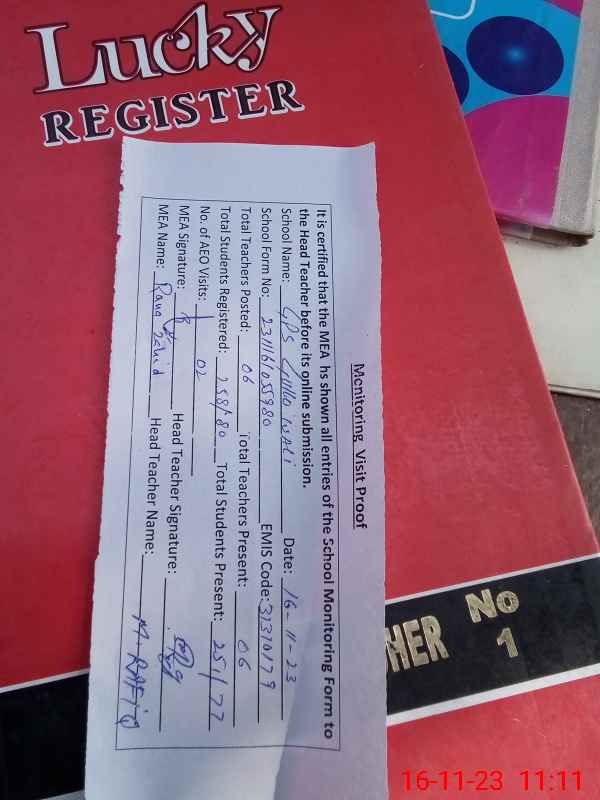 Lucky
REGISTER
Monitoring Visit Proof
It is certified that the MEA hs shown all entries of the School Monitoring Form to
the Head Teacher before its online submission.
School Name: GPS Date: 16-11-23
School Form No: EMIS Code: 31310179
Total Teachers Posted: 06 Total Teachers Present: 06
Total Students Registered: 258/80 Total Students Present: 251/77
No. of AEO Visits: 02
MEA Signature: Head Teacher Signature:
MEA Name: Rana Zahid Head Teacher Name: M-RAFiQ
No
HER 1
16-11-23 11:11